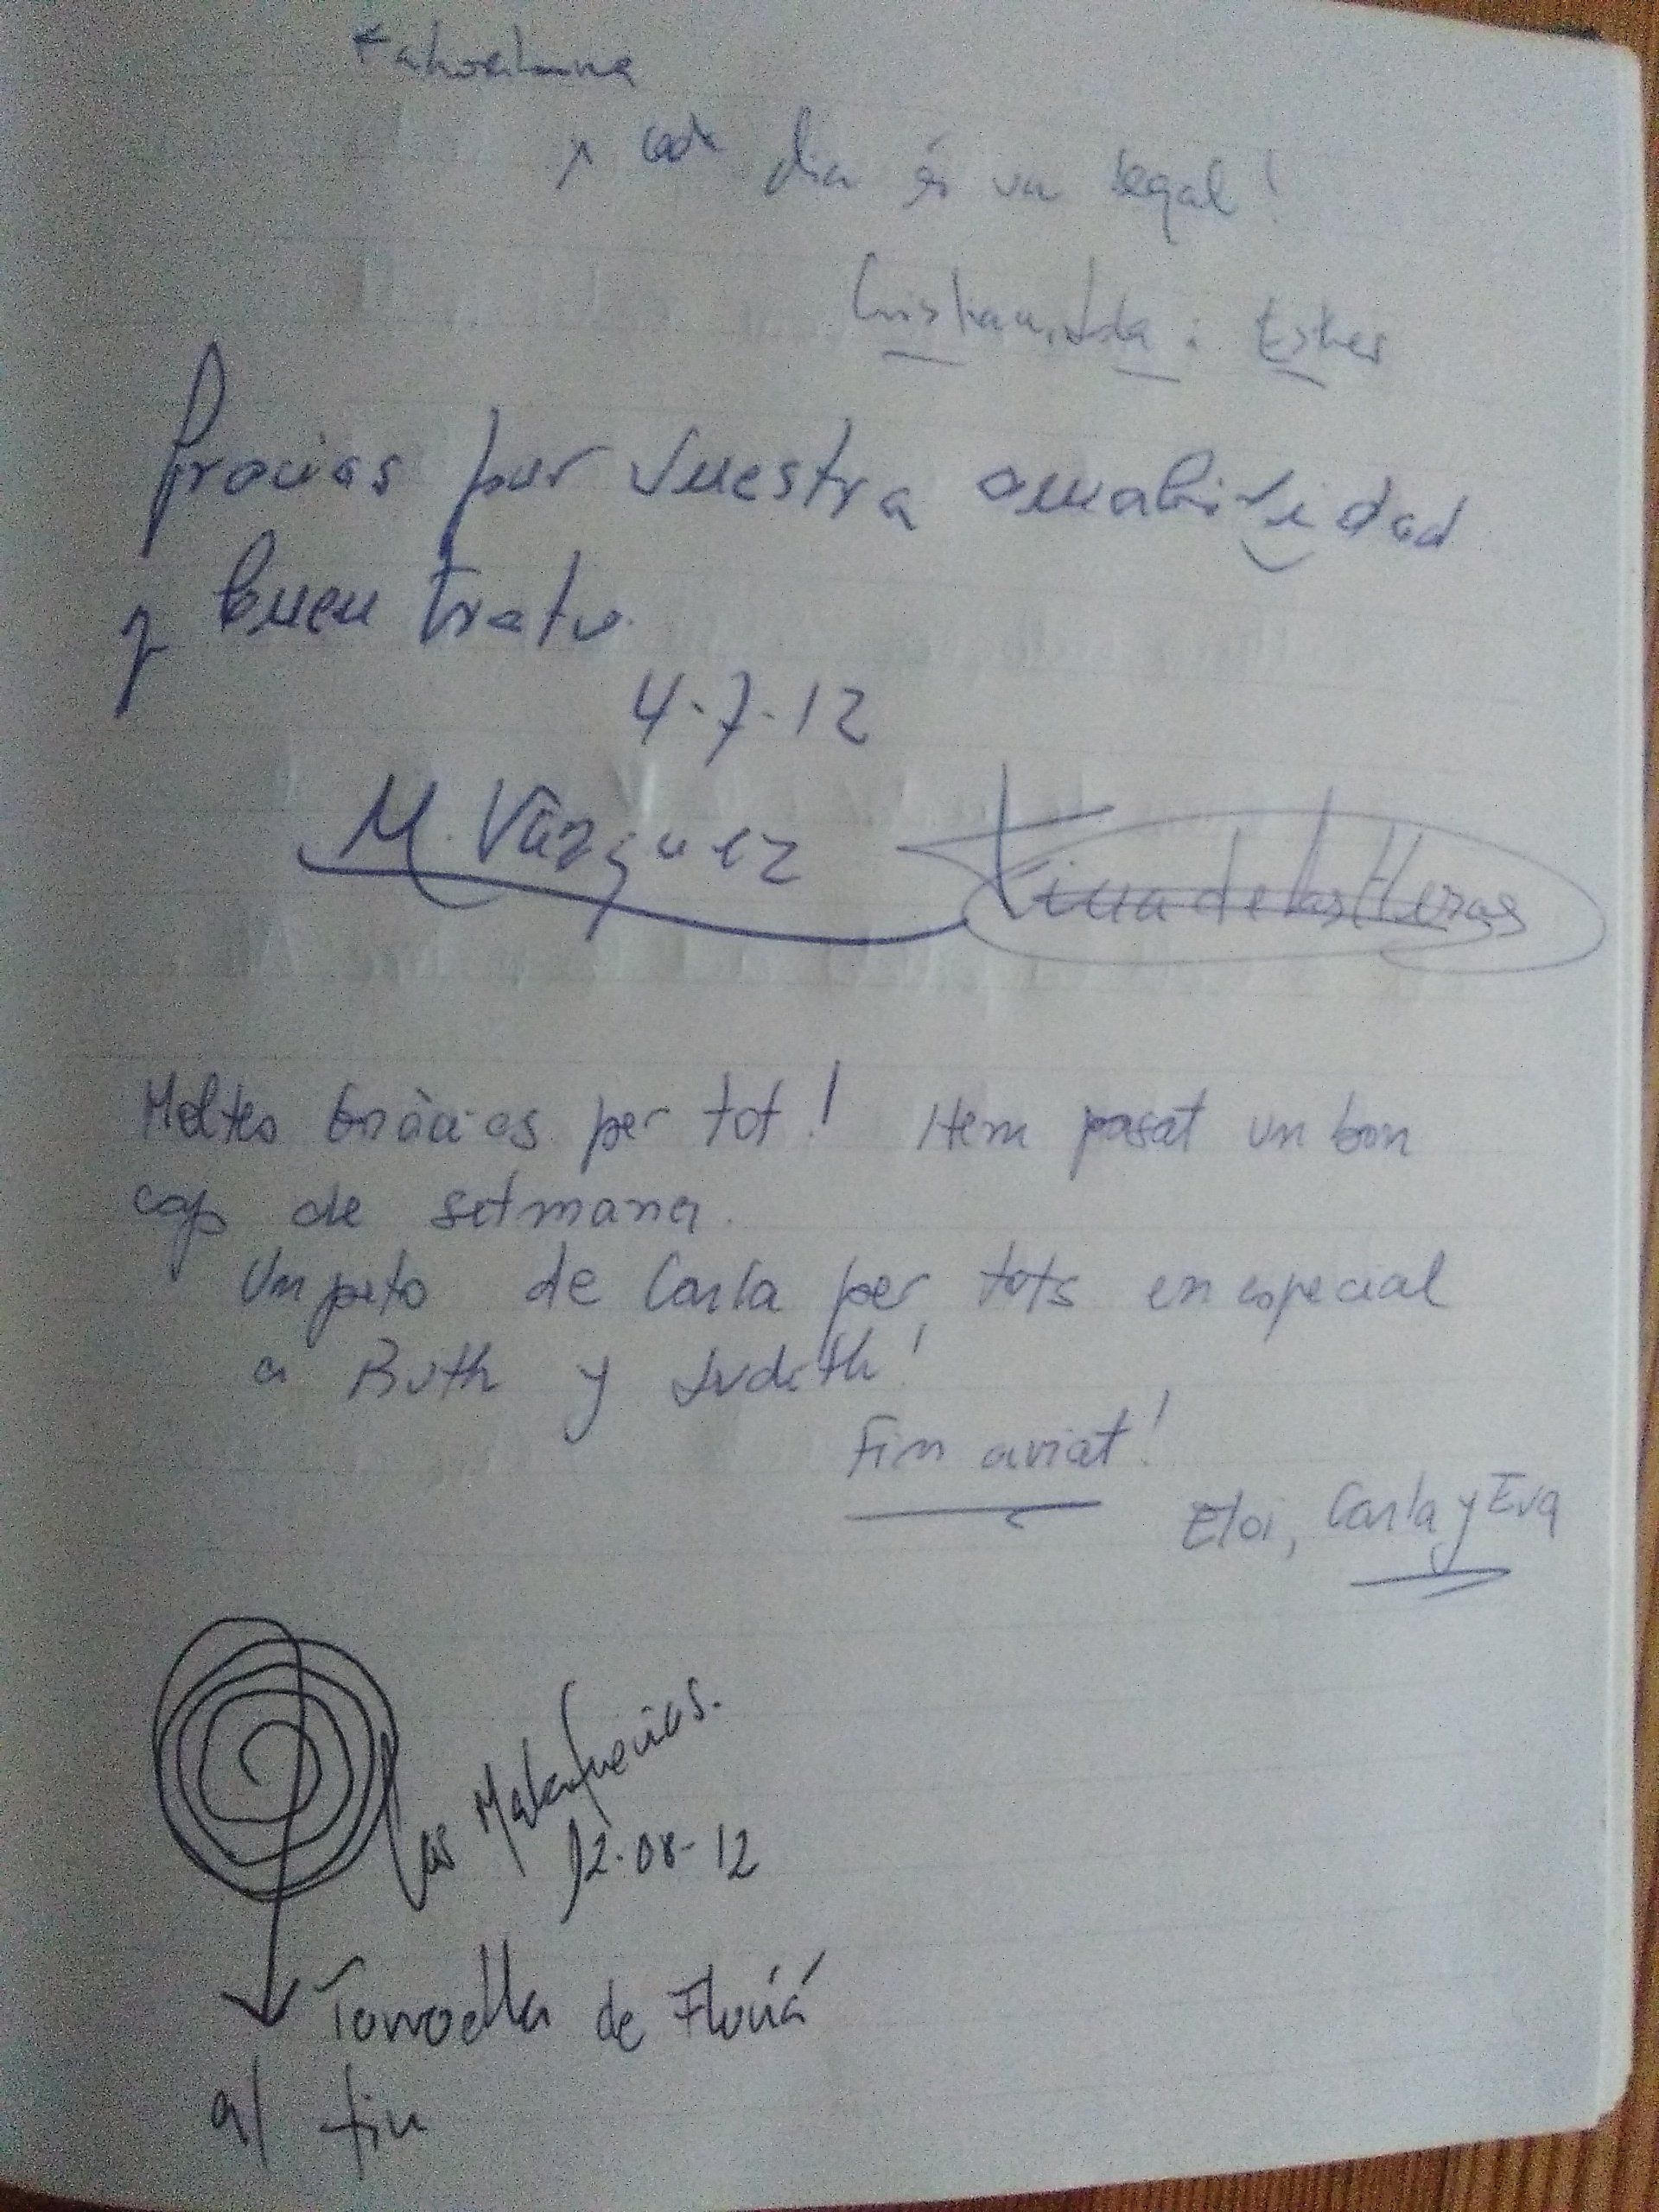 cada dia és un regal!
i Esther
Gracias por vuestra amabilidad
y buen trato.
4-7-12
M. Vázquez
Tina de las Heras
Moltes Gràcies per tot! Hem pasat un bon
cap de setmana.
Un peto de Carla per tots en especial
a Ruth y Judith!
Fins aviat!
Eloi, Carla y Eva
12-08-12
Torroella de Fluviá
al fin